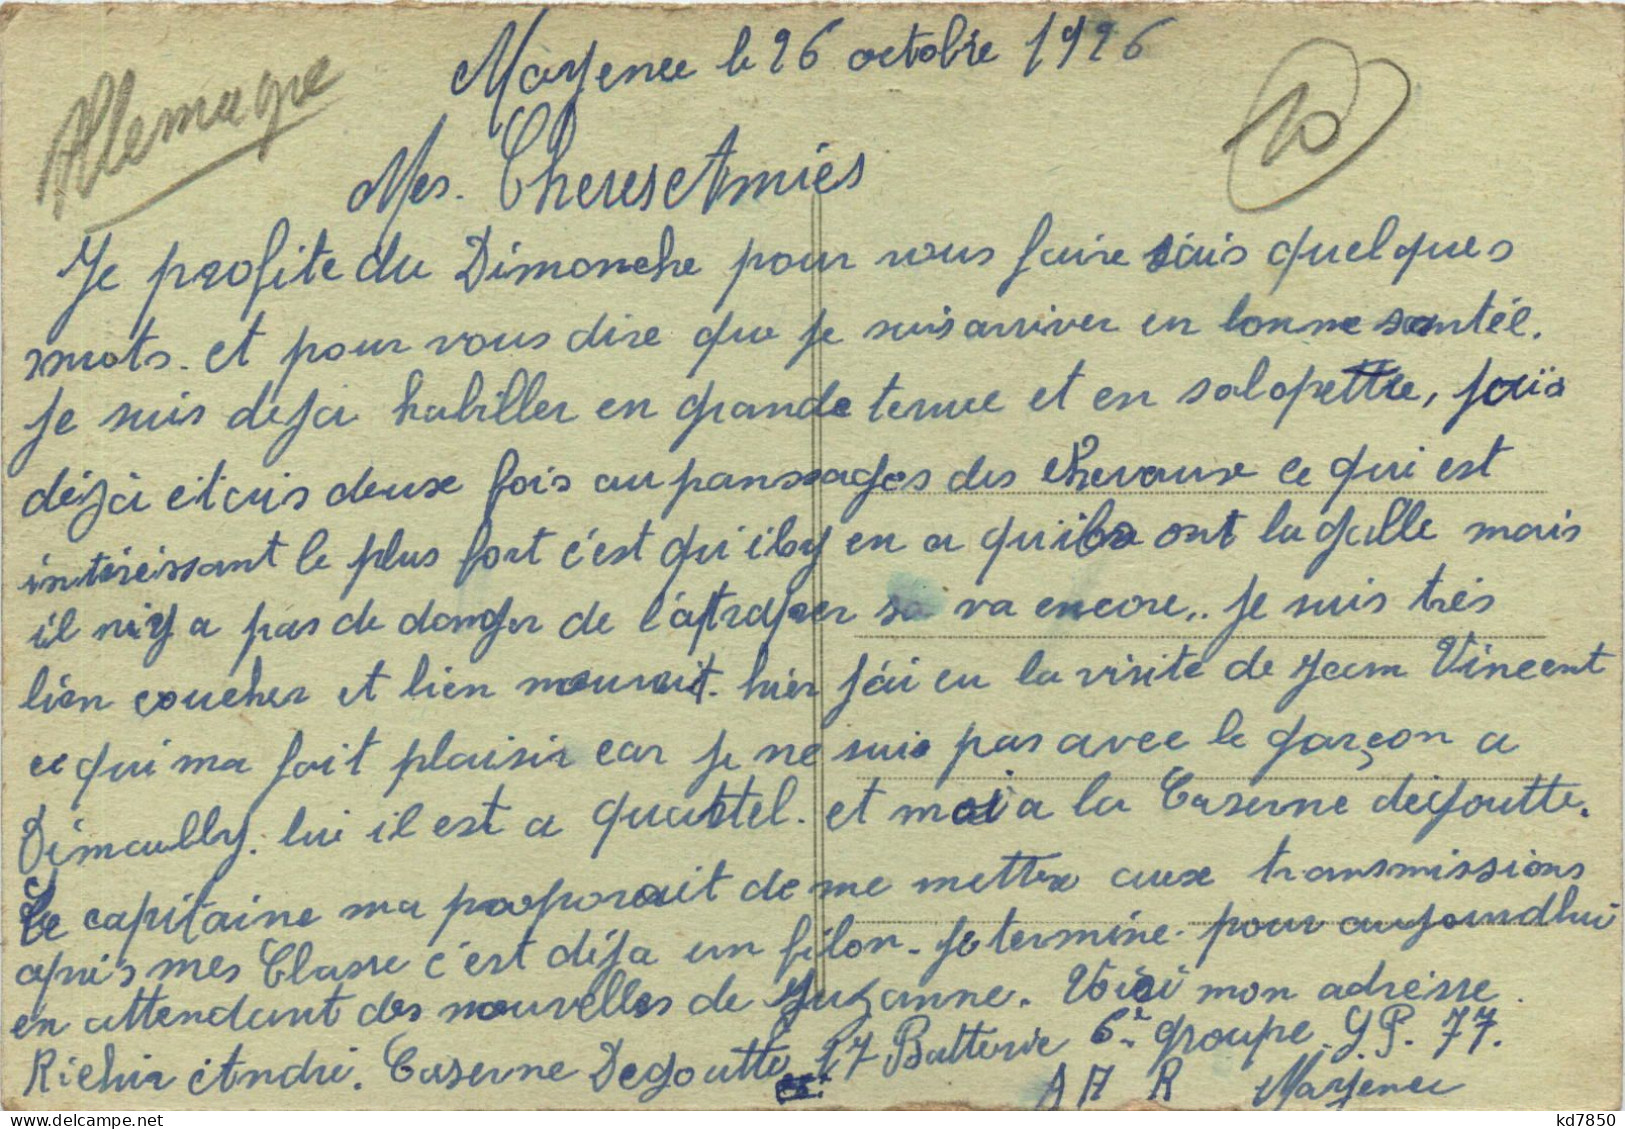 Allemagne
Mayence le 26 octobre 1926
10
Mes. Cheres Amies
Je profite du Dimanche pour vous faire sais quelques
mots. et pour vous dire que je suis arriver en bonne santée.
je suis deja habiller en grande tenue et en salopettre, jais
déjà etais deuse fois au panssages des chevause ce qui est
intéréissant le plus fort c'est qu'il y en a qu'ils ont la galle mais
il niy a pas de danger de l'attraper sa va encore.. je suis très
bien coucher et bien nourrit. hier j'ai eu la visite de Jean Vincent
ce qui ma fait plaisir car je ne suis pas avec le garçon a
Dimaully. lui il est a quartel. et moi a la Caserne degoutte.
Le capitaine ma proporait de me mettre ause transmissions
apris mes Classe c'est déja un filon. je termine pour aujourdhui
en attendant des nouvelles de Suzanne. Voici mon adresse.
Richir André. Caserne Degoutte 17 Batterie 6e groupe. S P. 77.
A A R Mayence
kd7850